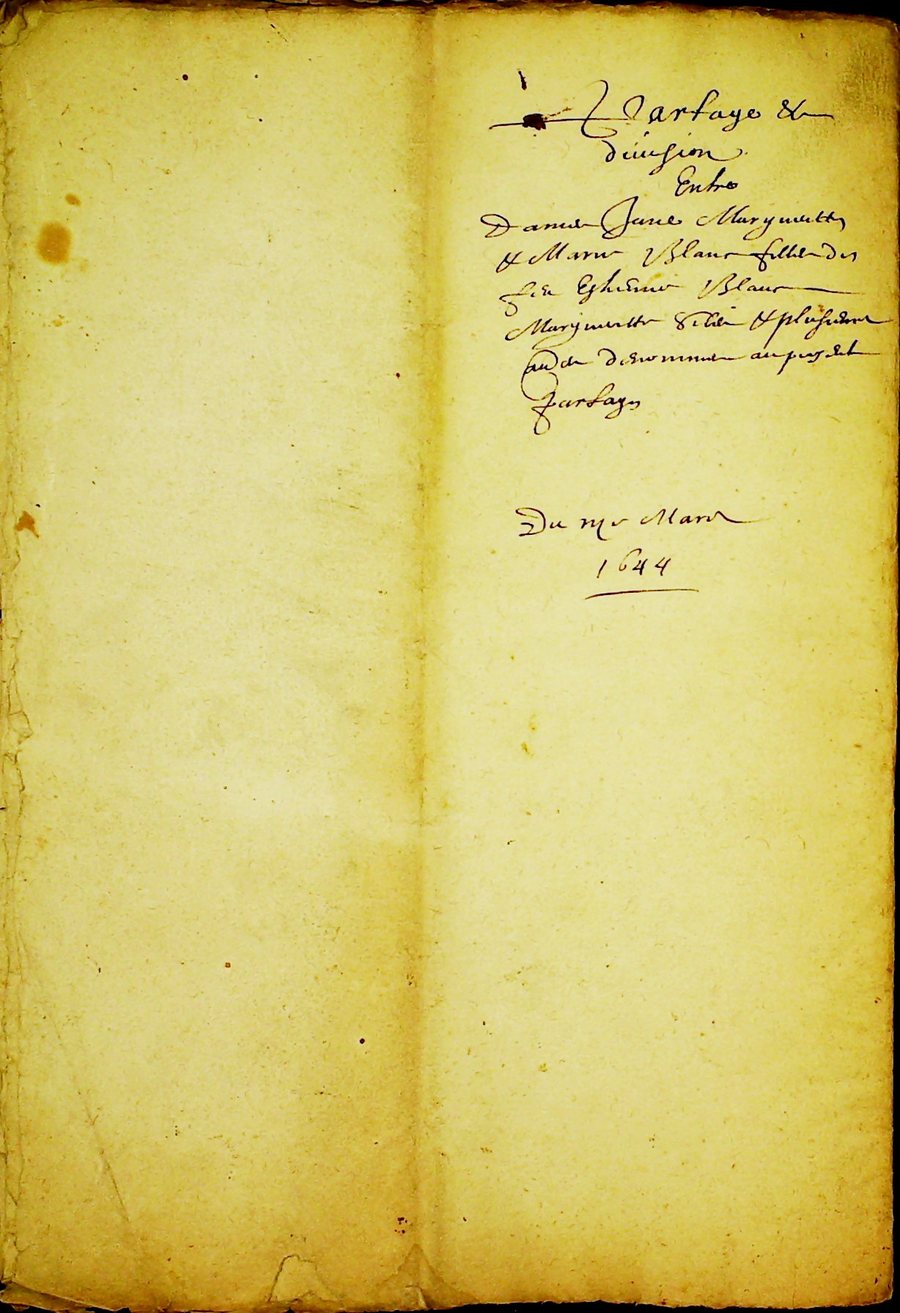 Partage &
diuision
Entre
Dames Jane Margueritte
& Marie Blanc filles de
feu Esthienne Blanc
Marguerite & plusieurs
denommes au present
partage
Du Mars
1644